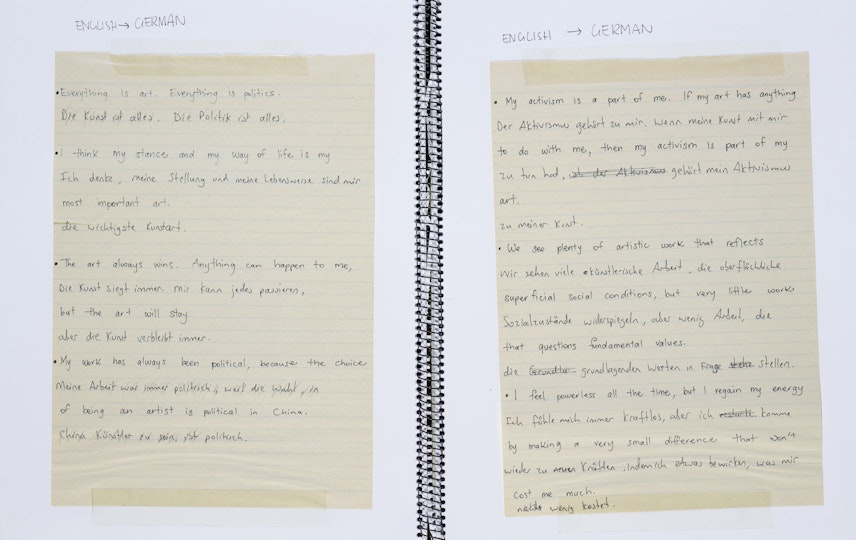 ENGLISH → GERMAN
• Everything is art. Everything is politics.
Die Kunst ist alles. Die Politik ist alles.
• I think my stance and my way of life is my
Ich denke, meine Stellung und meine Lebensweise sind mir
most important art.
die wichtigste Kunstart.
• The art always wins. Anything can happen to me,
Die Kunst siegt immer. Mir kann jedes passieren,
but the art will stay
aber die Kunst verbleibt immer.
• My work has always been political, because the choice
Meine Arbeit war immer politisch, weil die Wahl, in
of being an artist is political in China.
China Künstler zu sein, ist politisch.
ENGLISH → GERMAN
• My activism is a part of me. If my art has anything
Der Aktivismus gehört zu mir. Wenn meine Kunst mit mir
to do with me, then my activism is part of my
zu tun hat, ist der Aktivismus gehört mein Aktivismus
art.
zu meiner Kunst.
• We see plenty of artistic work that reflects
Wir sehen viele künstlerische Arbeit, die oberflächliche
superficial social conditions, but very little work
Sozialzustände widerspiegeln, aber wenig Arbeit, die
that questions fundamental values.
die Grundla grundlagenden Werten in Frage stehe stellen.
• I feel powerless all the time, but I regain my energy
Ich fühle mich immer kraftlos, aber ich komme
by making a very small difference that won't
wieder zu neuen Kräften, indem ich etwas bewirken, was mir
cost me much.
nichts wenig kostet.